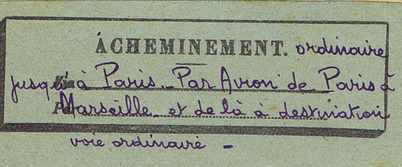 ACHEMINEMENT. ordinaire
jusqu'à Paris - Par Avion de Paris à
Marseille et de là à destination
voie ordinaire -